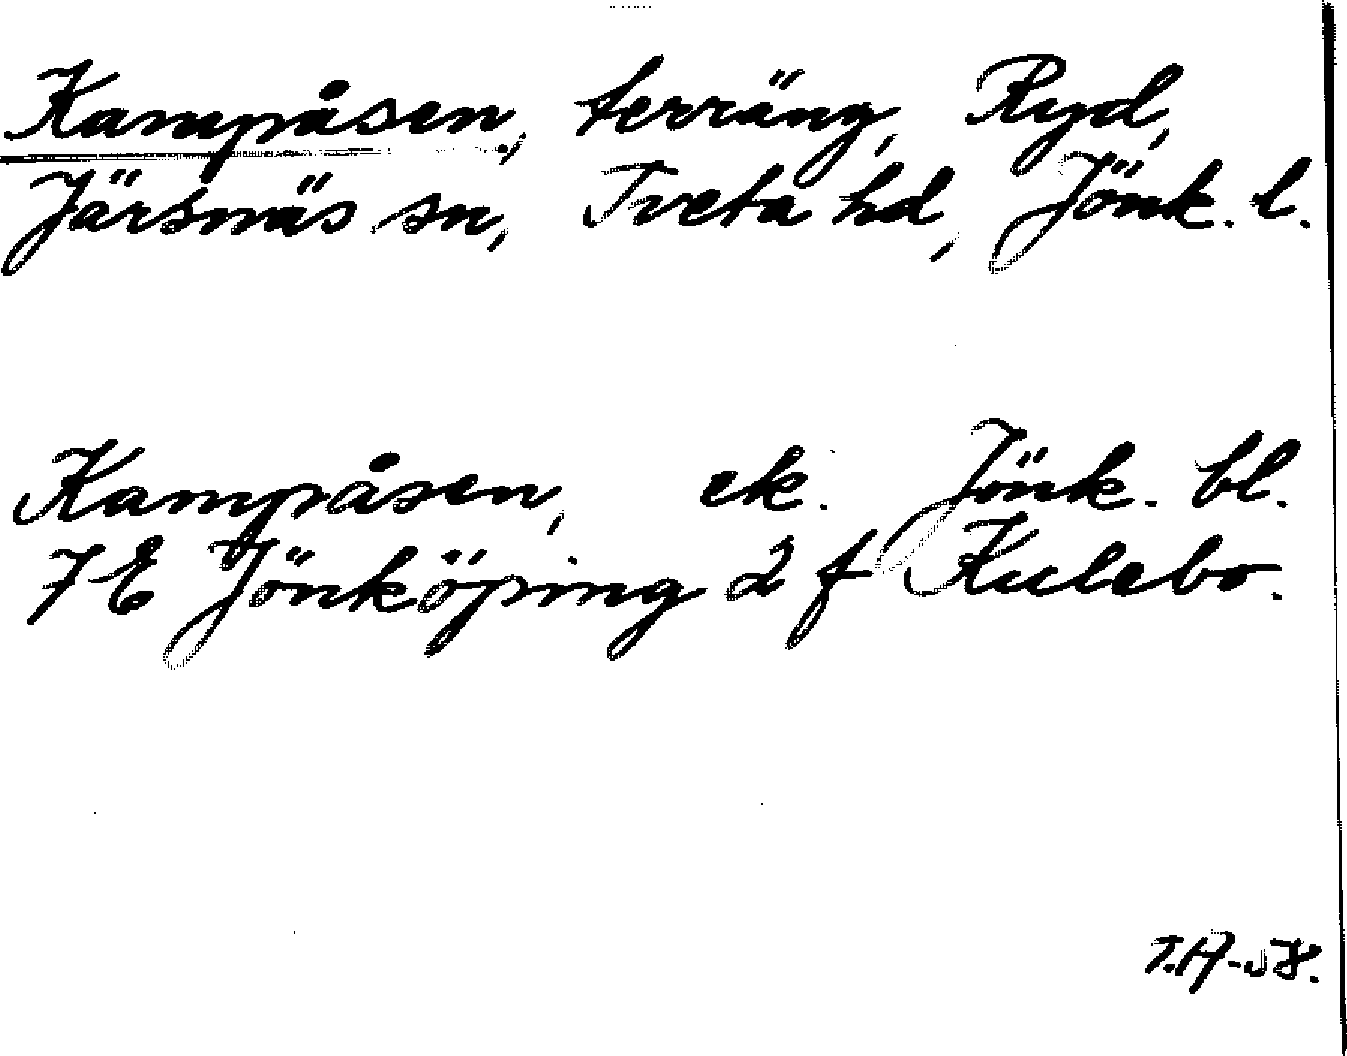 Kampåsen, terräng, Ryd,
Järsnäs sn, Tveta hd, Jönk. l.
Kampåsen, ek. Jönk. bl.
7E Jönköping 2 f Kulebo.
T.A-58.